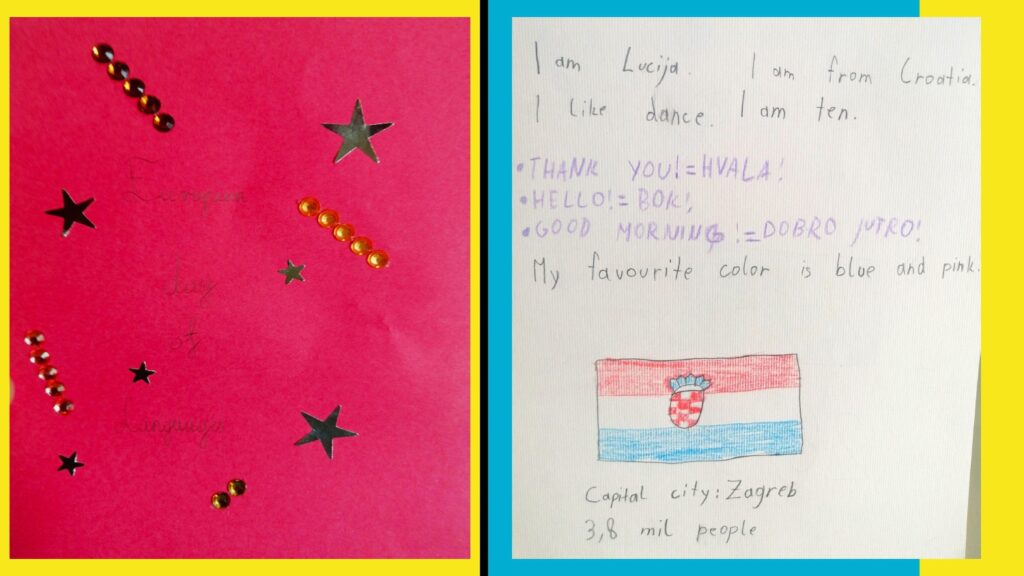 European
day
of
Languages
I am Lucija. I am from Croatia.
I like dance. I am ten.
•THANK YOU!=HVALA!
•HELLO!=BOK!
•GOOD MORNING!=DOBRO JUTRO!
My favourite color is blue and pink.
Capital city: Zagreb
3,8 mil people